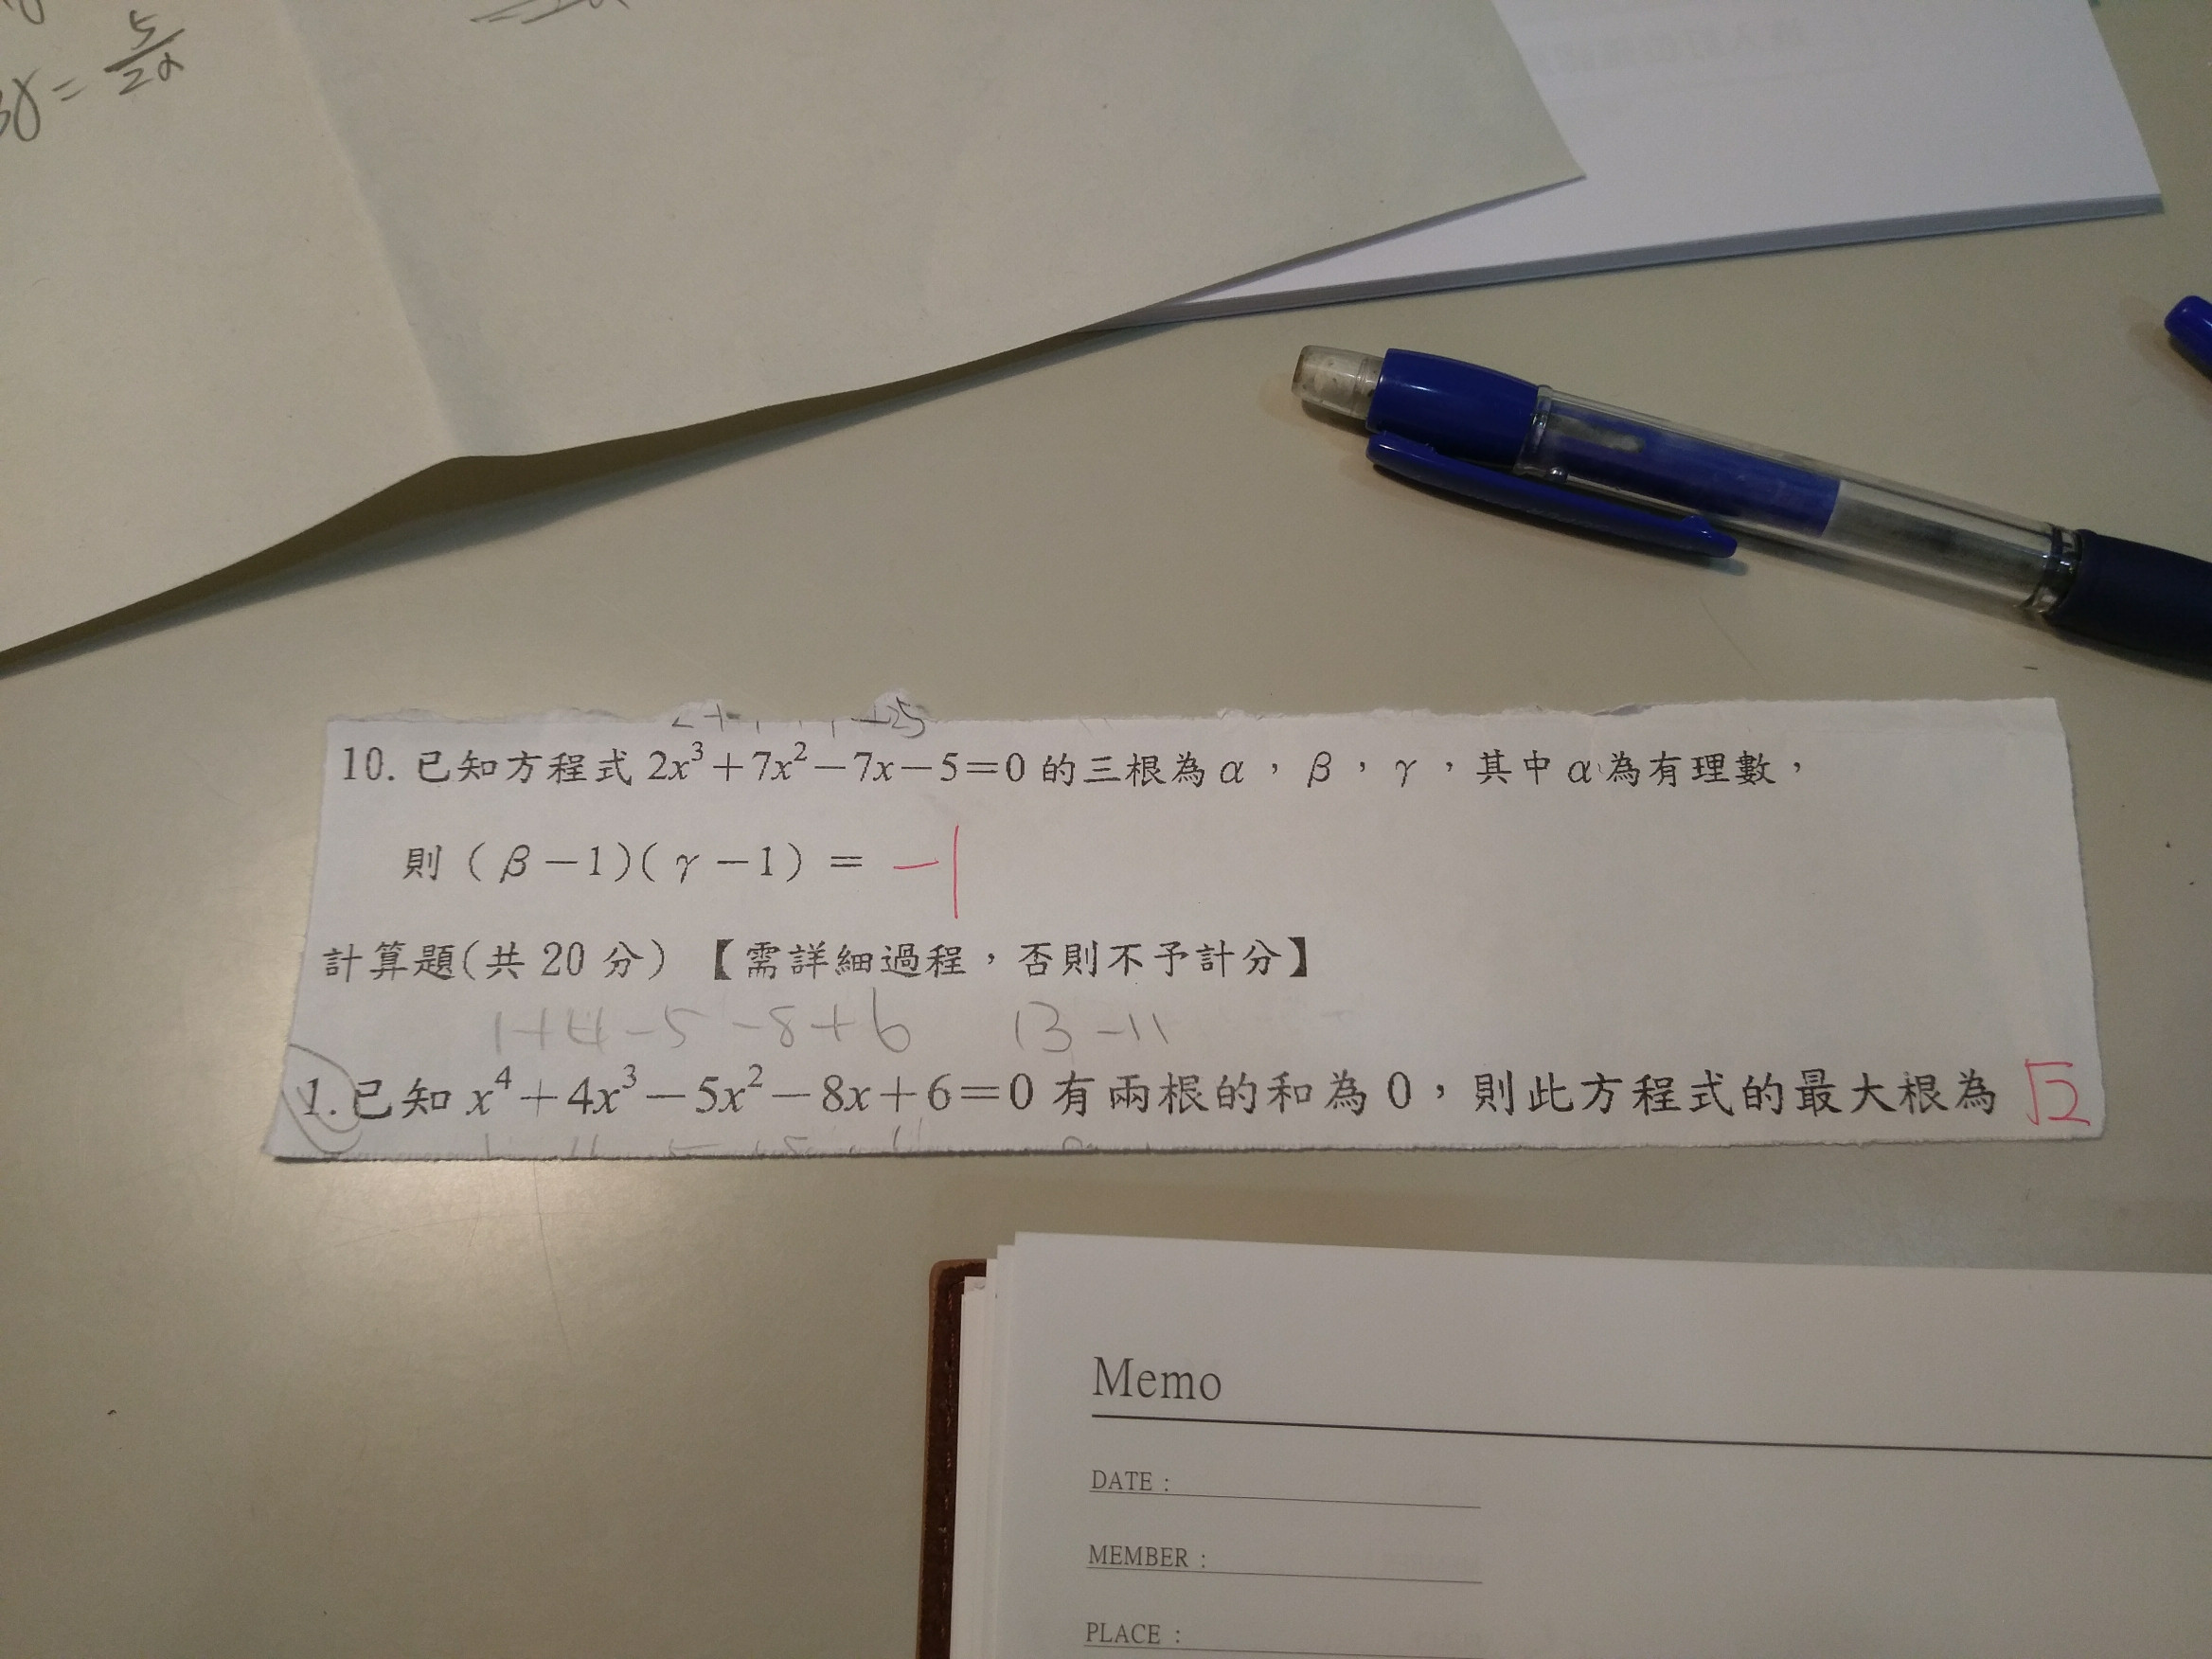 γ = 5/2α
10. 已知方程式 2x³+7x²−7x−5=0 的三根為 α，β，γ，其中 α 為有理數，
則 (β−1)(γ−1) = −1
計算題(共 20 分) 【需詳細過程，否則不予計分】
1+4−5−8+6 13−11
1. 已知 x⁴+4x³−5x²−8x+6=0 有兩根的和為 0，則此方程式的最大根為 √2
Memo
DATE :
MEMBER :
PLACE :